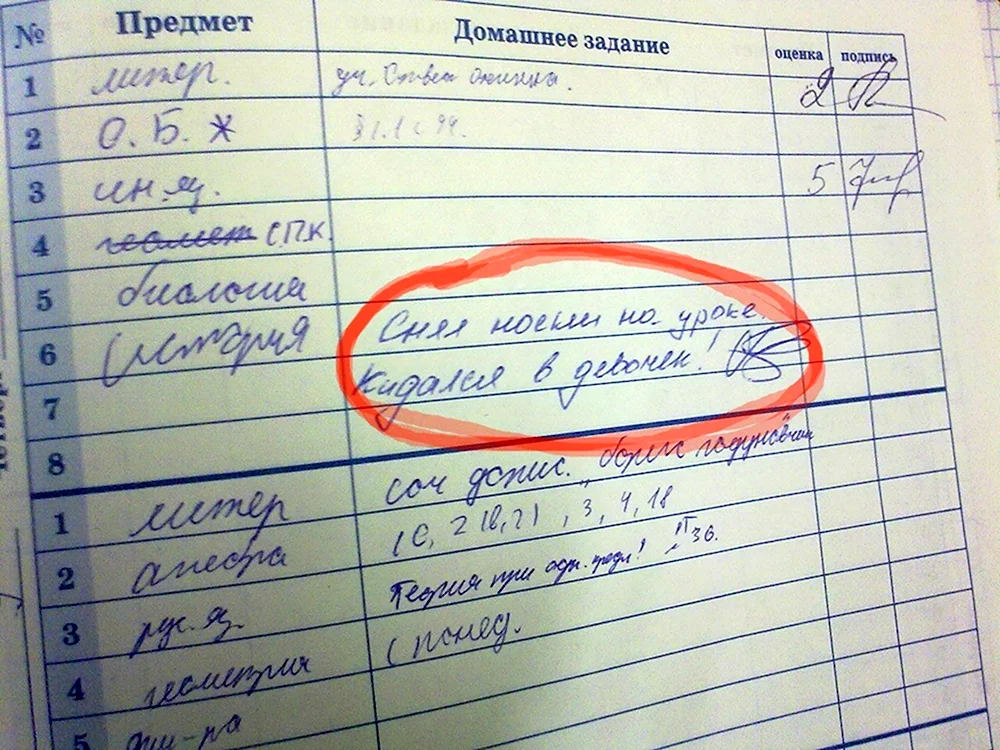 № Предмет Домашнее задание оценка подпись
1 литер. уч. Ответ 2
2 О.Б.Ж
3 ин.яз. 5
4 геомет СПК.
5 биология
6 история Снял носки на уроке.
7 Кидался в девочек!
8
1 литер соч допис. "борис годунов"
2 алгебра 3, 4, 18
3 рус.яз. Теория при
4 геометрия с понед.
5 физ-ра